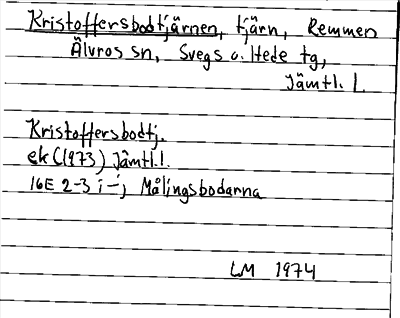 Kristoffersbodtjärnen, tjärn, Remmen
Älvros sn, Svegs o. Hede tg,
Jämtl. l.
Kristoffersbodtj.
ek (1973) Jämtl.l.
16E 2-3 i-j Målingsbodarna
LM 1974